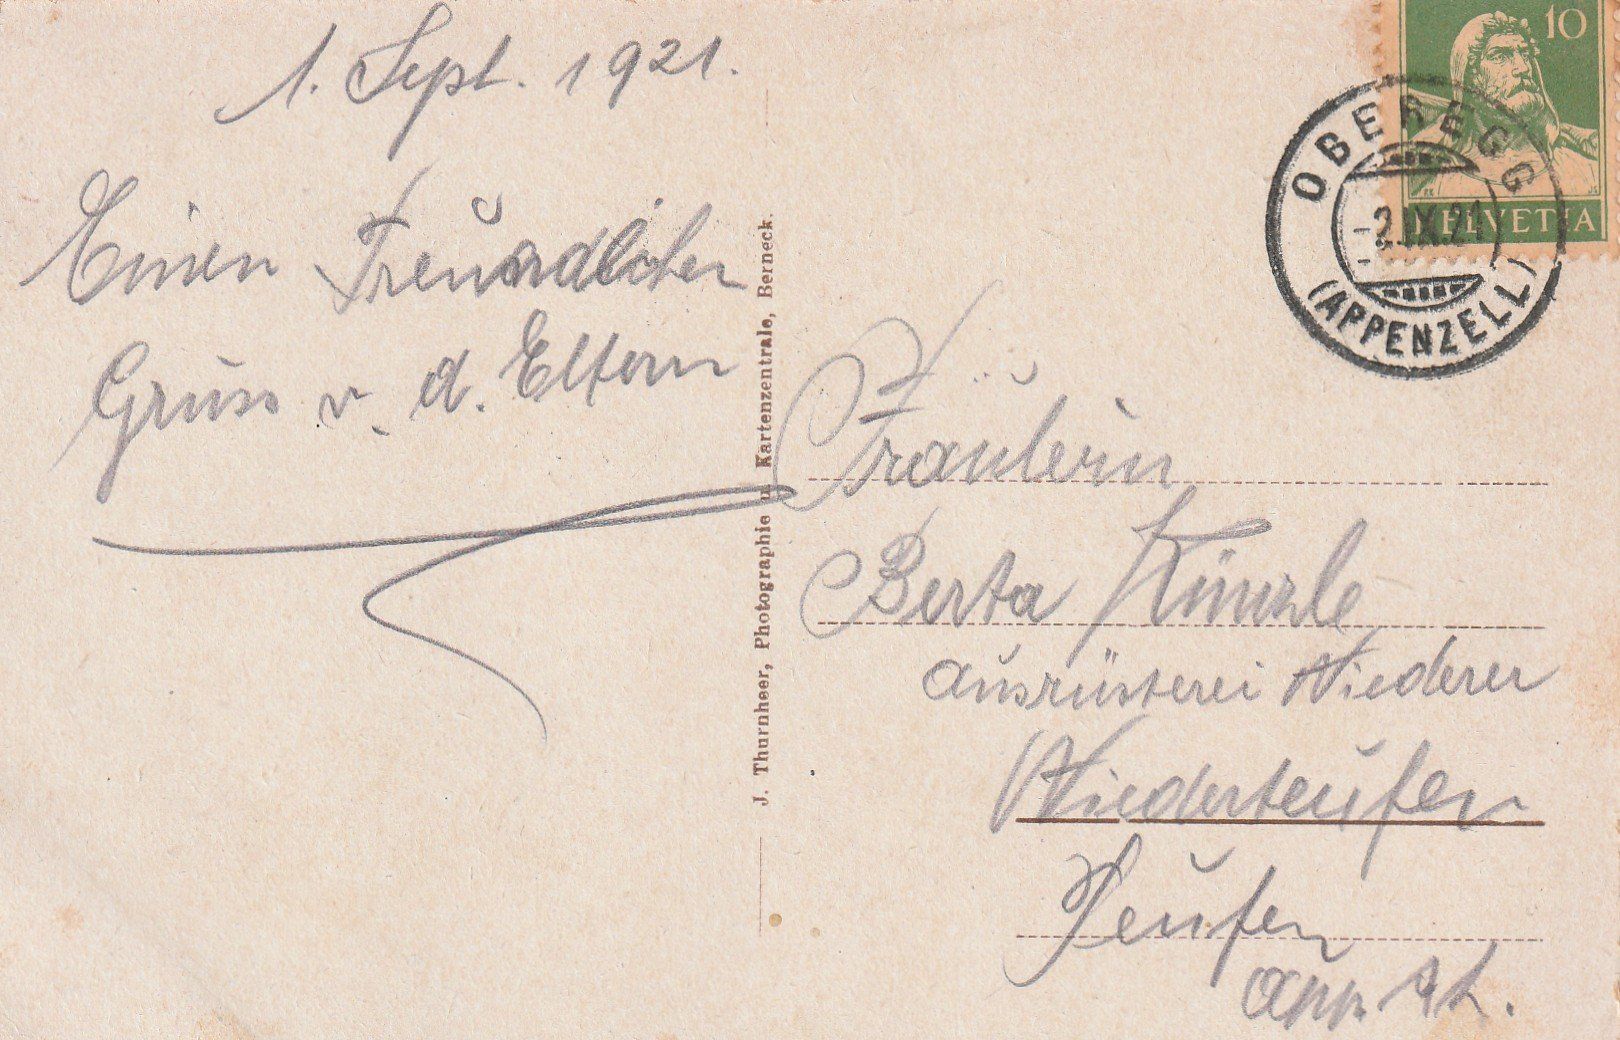 1. Sept. 1921.
Einen Freundlichen
Gruss v. d. Eltern
J. Thurnheer, Photographie u. Kartenzentrale, Berneck.
10
HELVETIA
OBEREGG
2.IX.21
(APPENZELL)
Fräulein
Berta Künzle
Ausrüsterei Niederer
Niederteufen
Teufen
App. A. Rh.